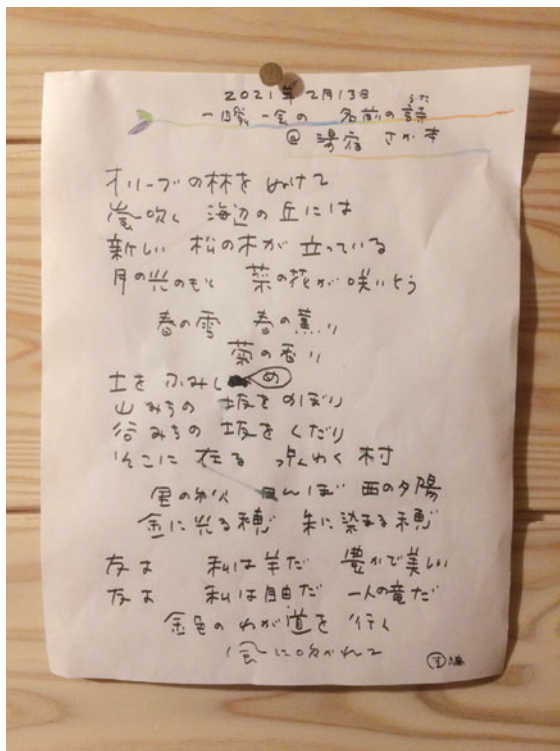 2021年2月13日
一期一会の 名前の詩
うた
@ 湯宿 さか本
オリーブの林を ぬけて
嵐吹く 海辺の丘には
新しい 松の木が 立っている
月の光のもと 菜の花が咲いとう
春の雪 春の薫り
菊の香り
土を ふみし め
山みちの 坂を のぼり
谷みちの 坂を くだり
そこに 在る わく 村
里の秋 田んぼ 西の夕陽
金に光る穂 朱に染まる穂
友よ 私は羊だ 豊かで美しい
友よ 私は自由だ 一人の竜だ
金色の わが道を 行く
に吹かれて